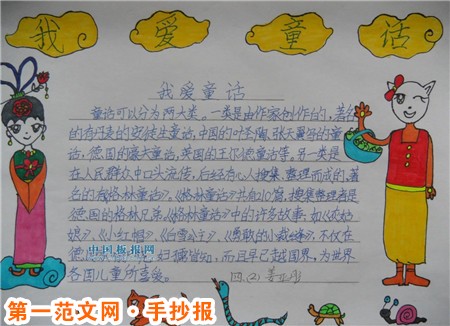 我 爱 童 话
我爱童话
童话可以分为两大类。一类是由作家创作的,著名
的有丹麦的安徒生童话,中国的叶圣陶、张天翼写的童
话,德国的豪夫童话,英国的王尔德童话等。另一类是
在人民群众中口头流传,后经有心人搜集、整理而成的,著
名的有《格林童话》。《格林童话》共有 篇,搜集整理者是
德国的格林兄弟。《格林童话》中的许多故事,如《灰姑
娘》、《小红帽》、《白雪公主》、《勇敢的小裁缝》,不仅在
中国板报网
德国 妇孺皆知,而且早已超越国界,为世界
各国儿童所喜爱。 四(2) 姜
第一范文网·手抄报